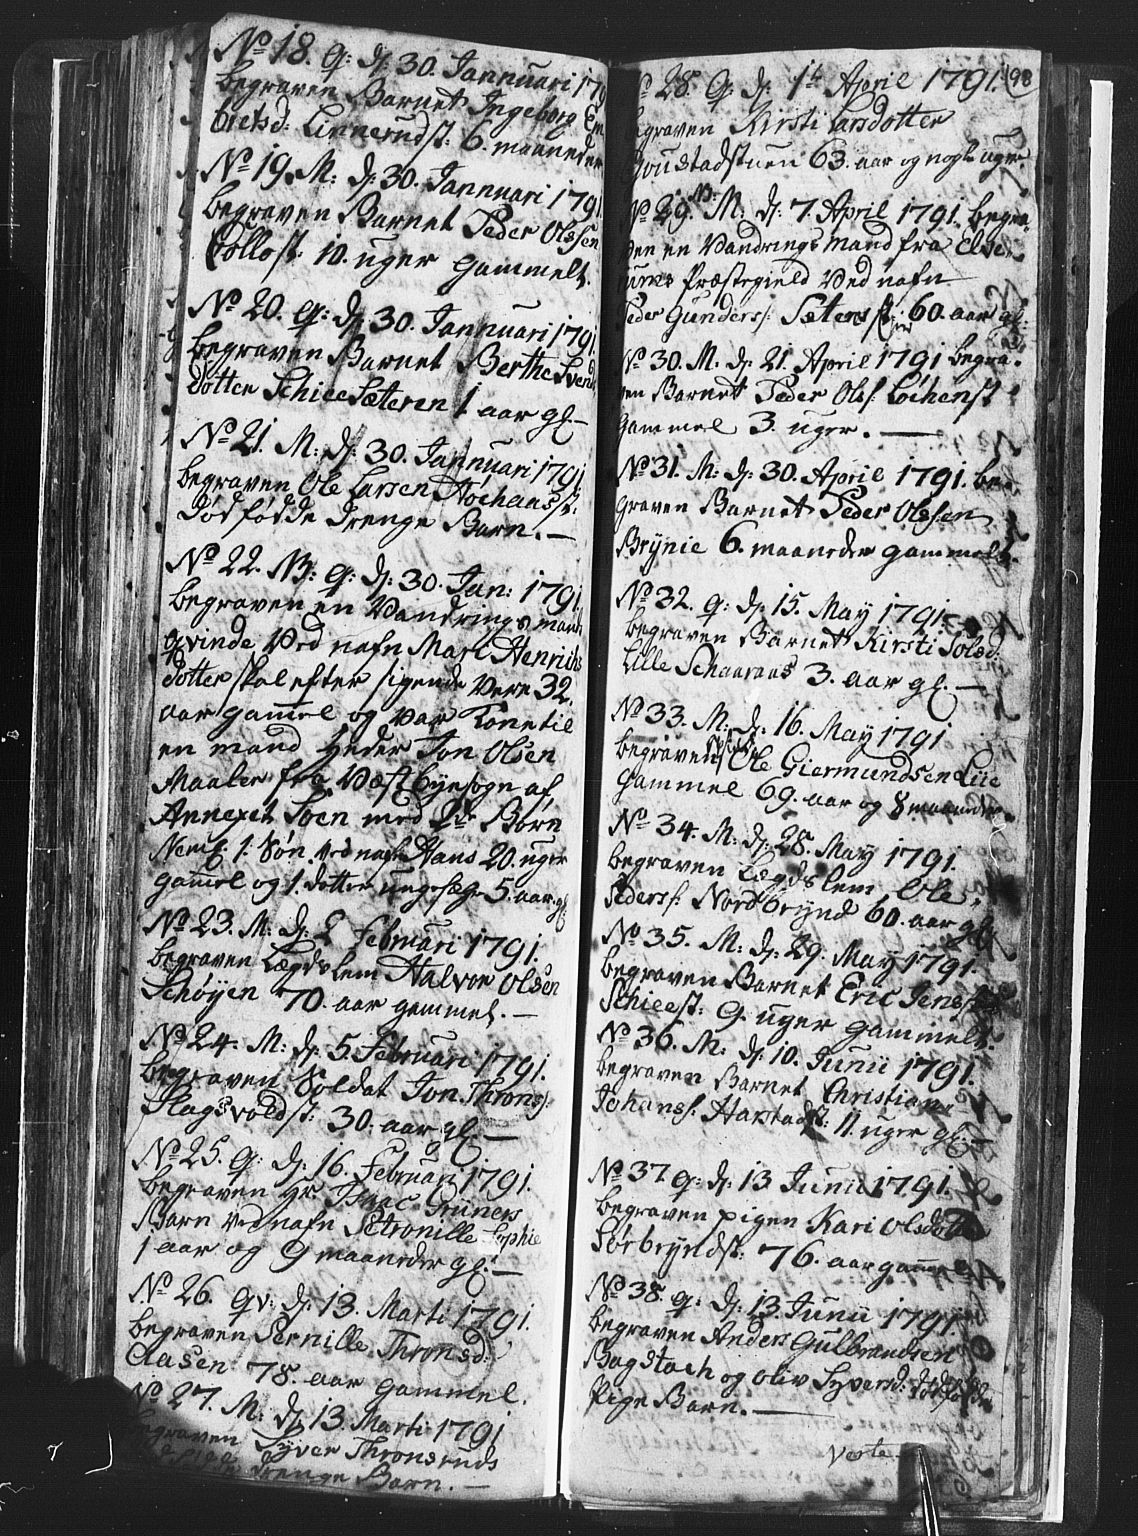 No 18. q: d: 30. Jannuari 179
begraven Barnet Ingeborg
bretsd: Linnerudst: 6. maaneder
No 19. M: d: 30. Jannuari 1791
begraven Barnet Peder Olssen
Collost: 10. uger gammelt.
No 20. q: d: 30. Jannuari 1791
begraven Barnet Berthe Svends
dotter Schiee Sæteren 1 aar gl. —
No 21. M. d: 30. Jannuari 1791
begraven Ole Larsen
Død fødde drenge Barn. —
No 22. NB: q: d: 30. Jan: 1791
begraven en Vandrings mands
qvinde Ved nafn Mari Henrichs
dotter skal efter sigende Vere 32.
aar gammel og var Kone til
en mand heder Jon Olsen
Maaler fra Væst byesogn af
Annexet Soen med Børn
Neml: 1. Søn ved nafn Hans 20. uger
gammel og 1. dotter 5. aar gl
No 23. M: d: 2 Februari 1791.
begraven Lægdslem Halvor Olsen
Schøyen 70. aar gammel. —
No 24. M: d: 5. Februari 1791.
begraven Soldat Jon Throns:
Slagsvoldst: 30. aar gl: —
No 25. q: d: 16. Februari 1791.
begraven Hr Isaac Grüners
Barn ved nafn Petronille Sophie
1 aar og 9 maaneder gl: —
No 26. qv: d: 13. Marti 1791.
begraven Pernille Thronsd:
Aasen 78. aar gammel.
No 27. M. d: 13. Marti 1791
begraven Syver Thronsruds
drenge Barn. —
98
No 28. q: d: 1te April 1791.
begraven Kirsti Larsdotter
63. aar og nogle uger
No 29. NB. M. d: 7. April 1791. begra-
ven en Vandrings mand fra Elve-
rums Præstegield Ved nafn
Peder Gunders: 60. aar gl:
No 30. M. d: 21. April 1791 begra-
ven Barnet Peder Ols: Løchenst
gammel 3. uger. —
No 31. M: d: 30. April 1791. be-
graven Barnet Peder Olssen
Brynie 6. maaneder gammelt.
No 32. q: d: 15. May 1791.
begraven Barnet Kirsti
Lille 3. aar gl. —
No 33. M. d: 16. May 1791
begraven Ole Giermundsen Lie
gammel 69. aar og 8 maaneder.
No 34. M. d: 28. May 1791.
begraven Lægdslem Ole
Pederss: Nordbrynd 60. aar gl:
No 35. M: d: 29. May 1791.
begraven Barnet Eric Jens
Schieest: 9. uger gammelt.
No 36. M: d: 10. Junii 1791.
begraven Barnet Christian
Johans: Harstadst: 11. uger gl: —
No 37 q: d: 13 Junii 1791.
begraven pigen Kari Olsdotter
Sørbryndst: 76. aar gammel
No 38. q: d: 13. Junii 1791.
begraven Anders Gulbrandsen
Bagstach og Oliv Syversd: dødfødde
Pige Barn. —
Verte